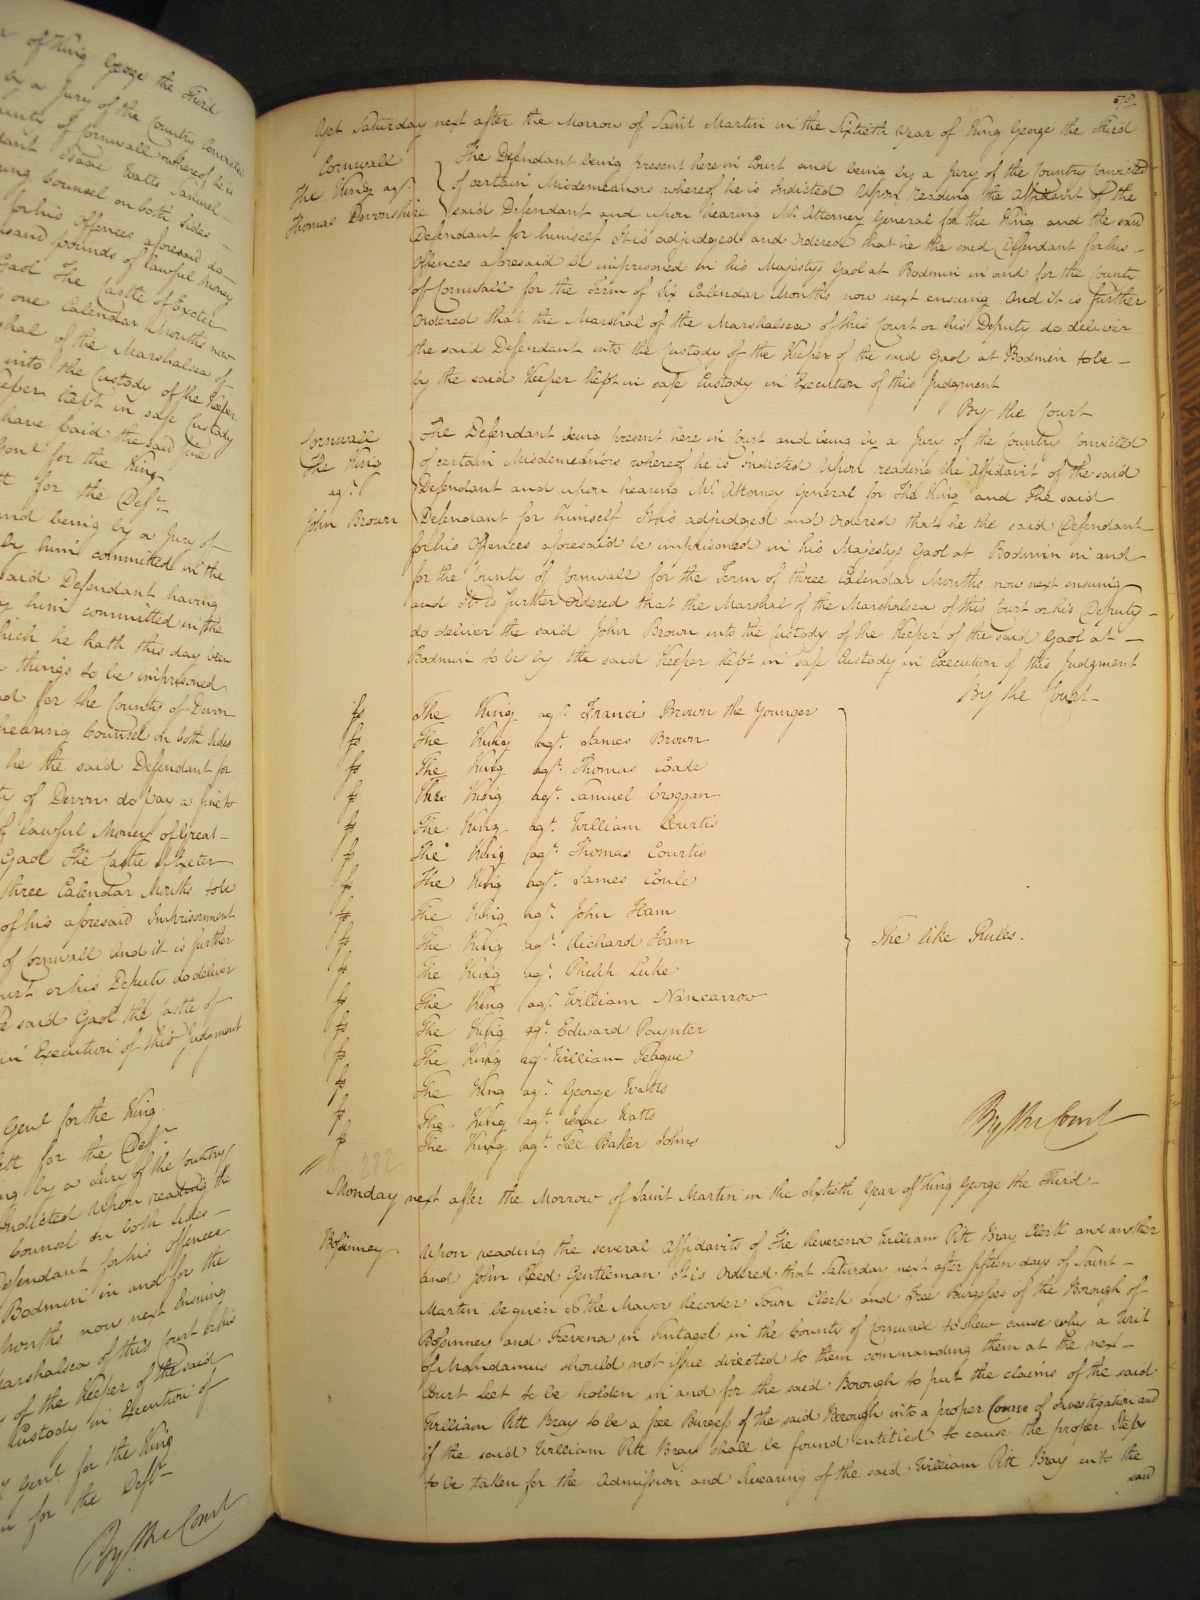 of King George the Third
by a Jury of the Country Convicted
County of Cornwall whereof he is
Isaac Watts Samuel
Counsel on both sides
for his offences aforesaid do
pounds of lawful money
Gaol The Castle of Exeter
one Calendar Months now
Marshal of the Marshalsea of
into the Custody of the Keeper
Keeper kept in safe Custody
have paid the said fine
Genl. for the King
for the Deft.
and being by a Jury of
by him committed in the
said Defendant having
by him committed in the
which he hath this day been
things to be imprisoned
and for the County of Devon
hearing Counsel on both sides
he the said Defendant for
of Devon do pay a fine to
of lawful Money of Great
Gaol The Castle of Exeter
three Calendar Months to be
of his aforesaid Imprisonment
of Cornwall And it is further
Court or his Deputy do deliver
the said Gaol the Castle of
in Execution of this Judgment
Genl. for the King
for the Deft.
by a Jury of the Country
Indicted Upon reading the
Counsel on both sides
Defendant for his offences
Bodmin in and for the
Months now next Ensuing
Marshalsea of this Court or his
of the Keeper of the said
Custody in Execution of
Genl. for the King
for the Deft.
By the Court
Yet Saturday next after the Morrow of Saint Martin in the Sixtieth Year of King George the Third
Cornwall
The King agt.
Thomas Devonshire
The Defendant being present here in Court and being by a Jury of the Country Convicted
of certain Misdemeanors whereof he is Indicted Upon reading the Affidavit of the
said Defendant and upon hearing Mr. Attorney General for the King and the said
Defendant for himself It is adjudged and Ordered that he the said Defendant for his
Offences aforesaid be imprisoned in his Majestys Gaol at Bodmin in and for the County
of Cornwall for the Term of Six Calendar Months now next ensuing And it is further
Ordered that the Marshal of the Marshalsea of this Court or his Deputy do deliver
the said Defendant into the Custody of the Keeper of the said Gaol at Bodmin to be
by the said Keeper kept in safe Custody in Execution of this Judgment
By the Court
Cornwall
The King
agt.
John Brown
The Defendant being present here in Court and being by a Jury of the Country Convicted
of certain Misdemeanors whereof he is Indicted Upon reading the Affidavit of the said
Defendant and upon hearing Mr. Attorney General for The King and The said
Defendant for himself It is adjudged and Ordered that he the said Defendant
for his Offences aforesaid be imprisoned in his Majestys Gaol at Bodmin in and
for the County of Cornwall for the Term of three Calendar Months now next ensuing
and It is further Ordered that the Marshal of the Marshalsea of this Court or his Deputy
do deliver the said John Brown into the Custody of the Keeper of the said Gaol at
Bodmin to be by the said Keeper kept in safe Custody in Execution of this Judgment
By the Court
The King agt. Francis Brown the Younger
The King agt. James Brown
The King agt. Thomas Coade
The King agt. Samuel Croggan
The King agt. William Courtis
The King agt. Thomas Courtis
The King agt. James Coule
The King agt. John Ham
The King agt. Richard Ham
The like Rules.
The King agt. Philip Luke
The King agt. William Nancarrow
The King agt. Edward Paynter
The King agt. William Teague
The King agt. George Watts
The King agt. Isaac Watts
The King agt. Lee Baker Johns
By the Court
222
Monday next after the Morrow of Saint Martin in the sixtieth Year of King George the Third
Bossinney
Upon reading the several Affidavits of The Reverend William Pitt Bray Clerk and another
and John Reed Gentleman It is Ordered that Saturday next after fifteen days of Saint
Martin be given to the Mayor Recorder Town Clerk and Free Burgesses of the Borough of
Bossinney and Trevena in Tintagel in the County of Cornwall to shew cause why a Writ
of Mandamus should not issue directed to them commanding them at the next
Court Leet to be holden in and for the said Borough to put the claims of the said
William Pitt Bray to be a free Burgess of the said Borough into a proper Course of Investigation and
if the said William Pitt Bray shall be found entitled to cause the proper Steps
to be taken for the Admission and Swearing of the said William Pitt Bray into the
said